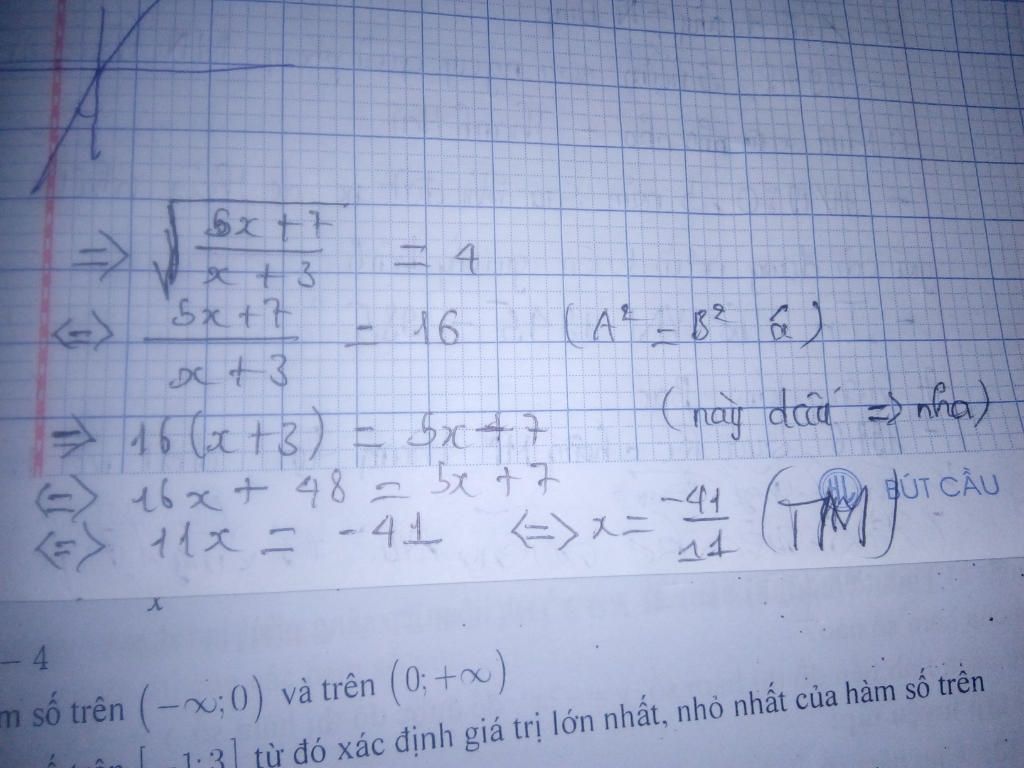 => √((5x + 7)/(x + 3)) = 4
<=> (5x + 7)/(x + 3) = 16 (A² = B² )
=> 16(x + 3) = 5x + 7 (này dấu => nha)
<=> 16x + 48 = 5x + 7
<=> 11x = -41 <=> x = -41/11 (TM)
BÚT CẦU
x
- 4
m số trên (-∞;0) và trên (0;+∞)
từ đó xác định giá trị lớn nhất, nhỏ nhất của hàm số trên